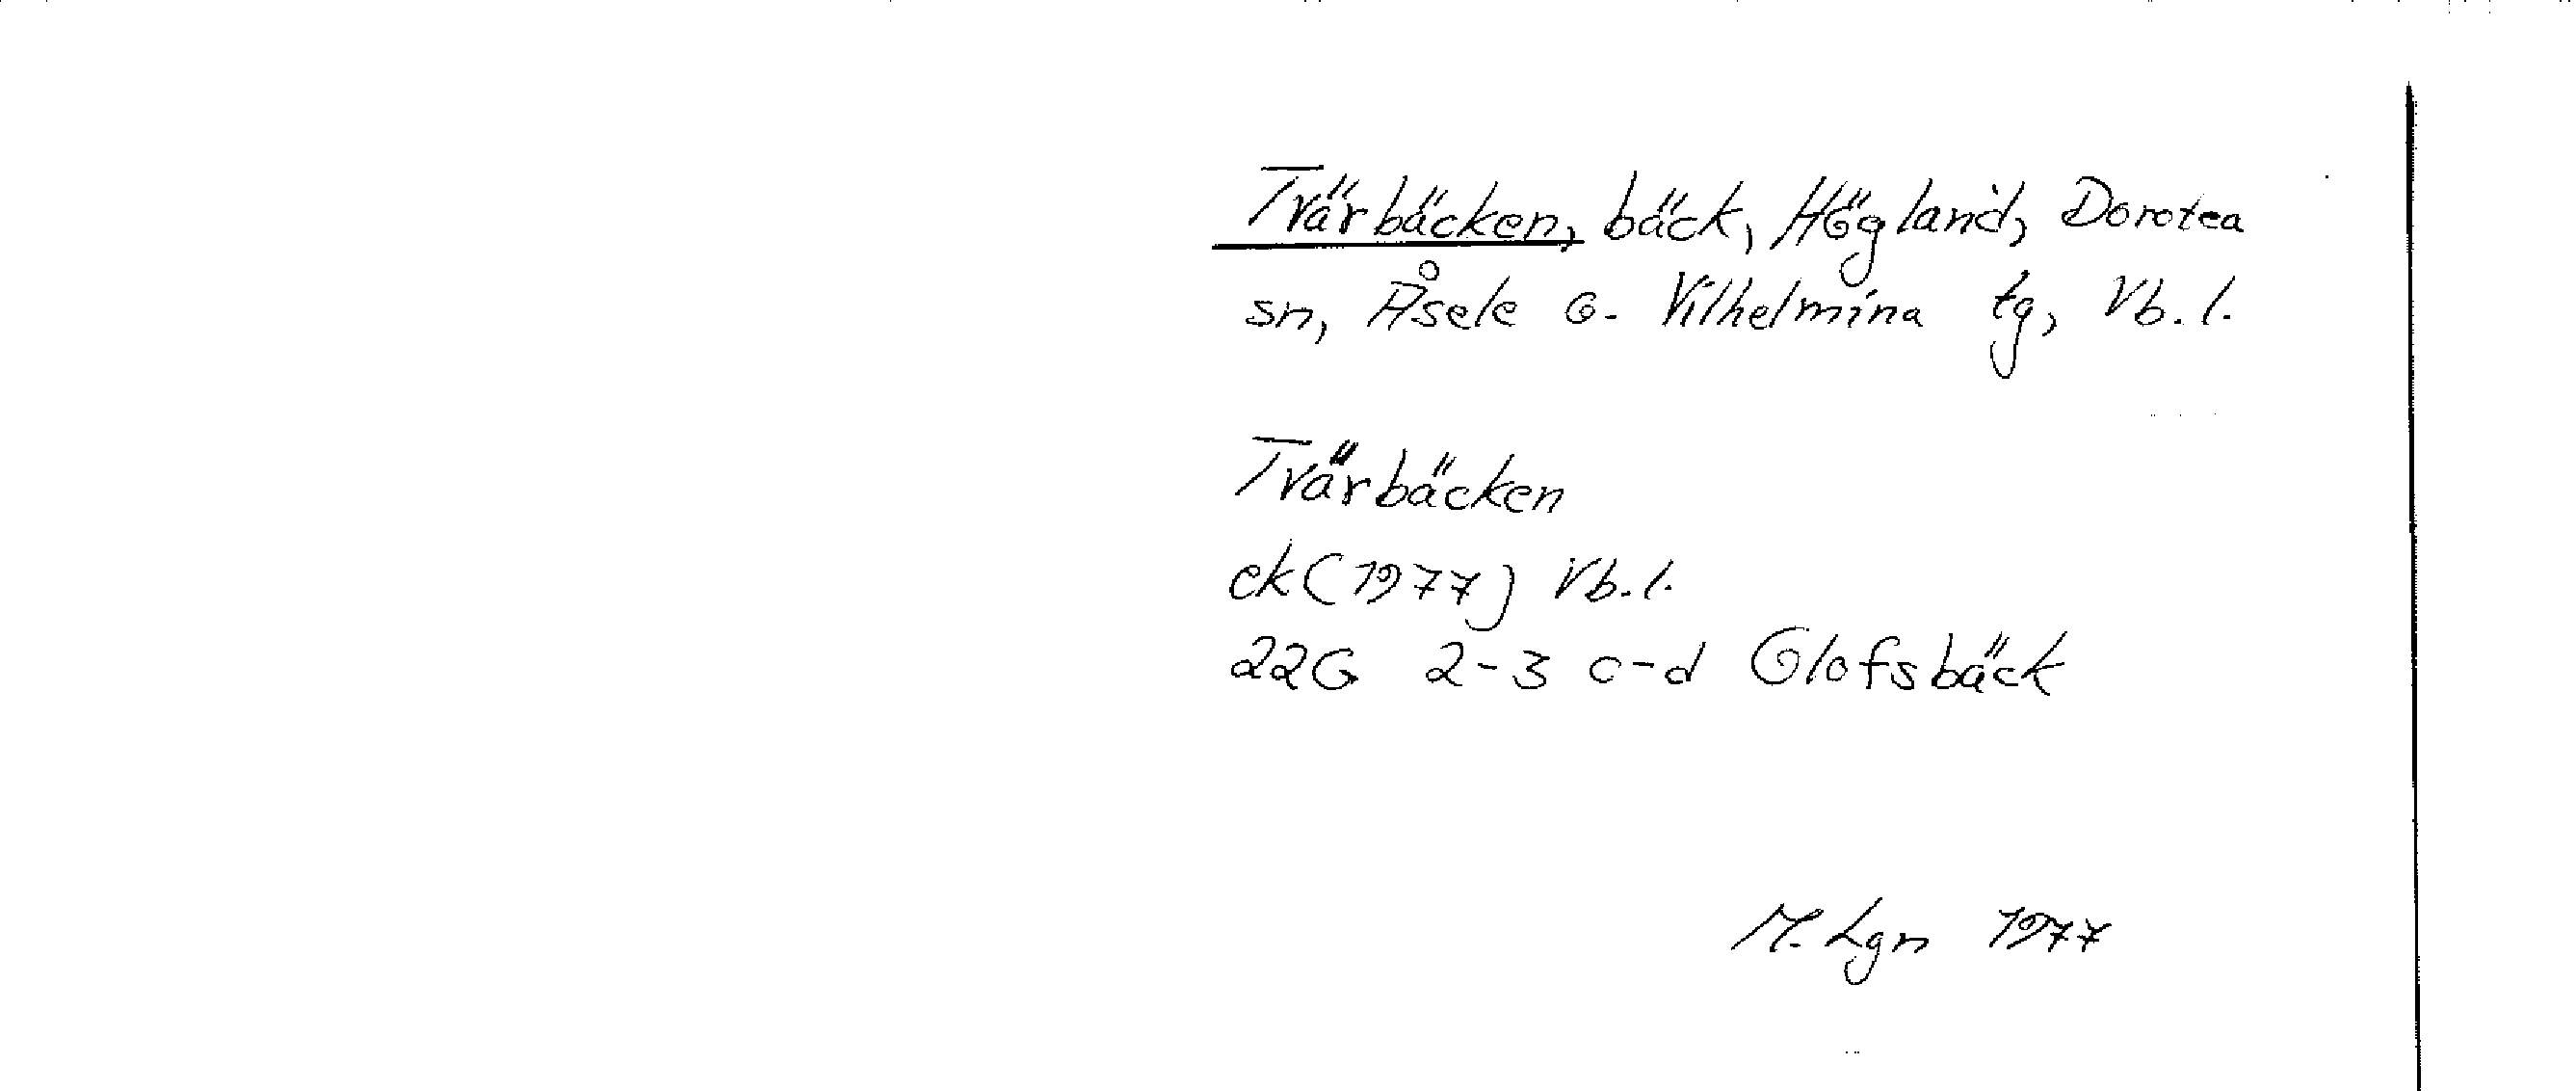 Tvärbäcken, bäck, Högland, Dorotea
sn, Åsele o. Vilhelmina tg, Vb. l.
Tvärbäcken
ek (1977) Vb. l.
22G 2-3 c-d Olofsbäck
M. Lgn 1977